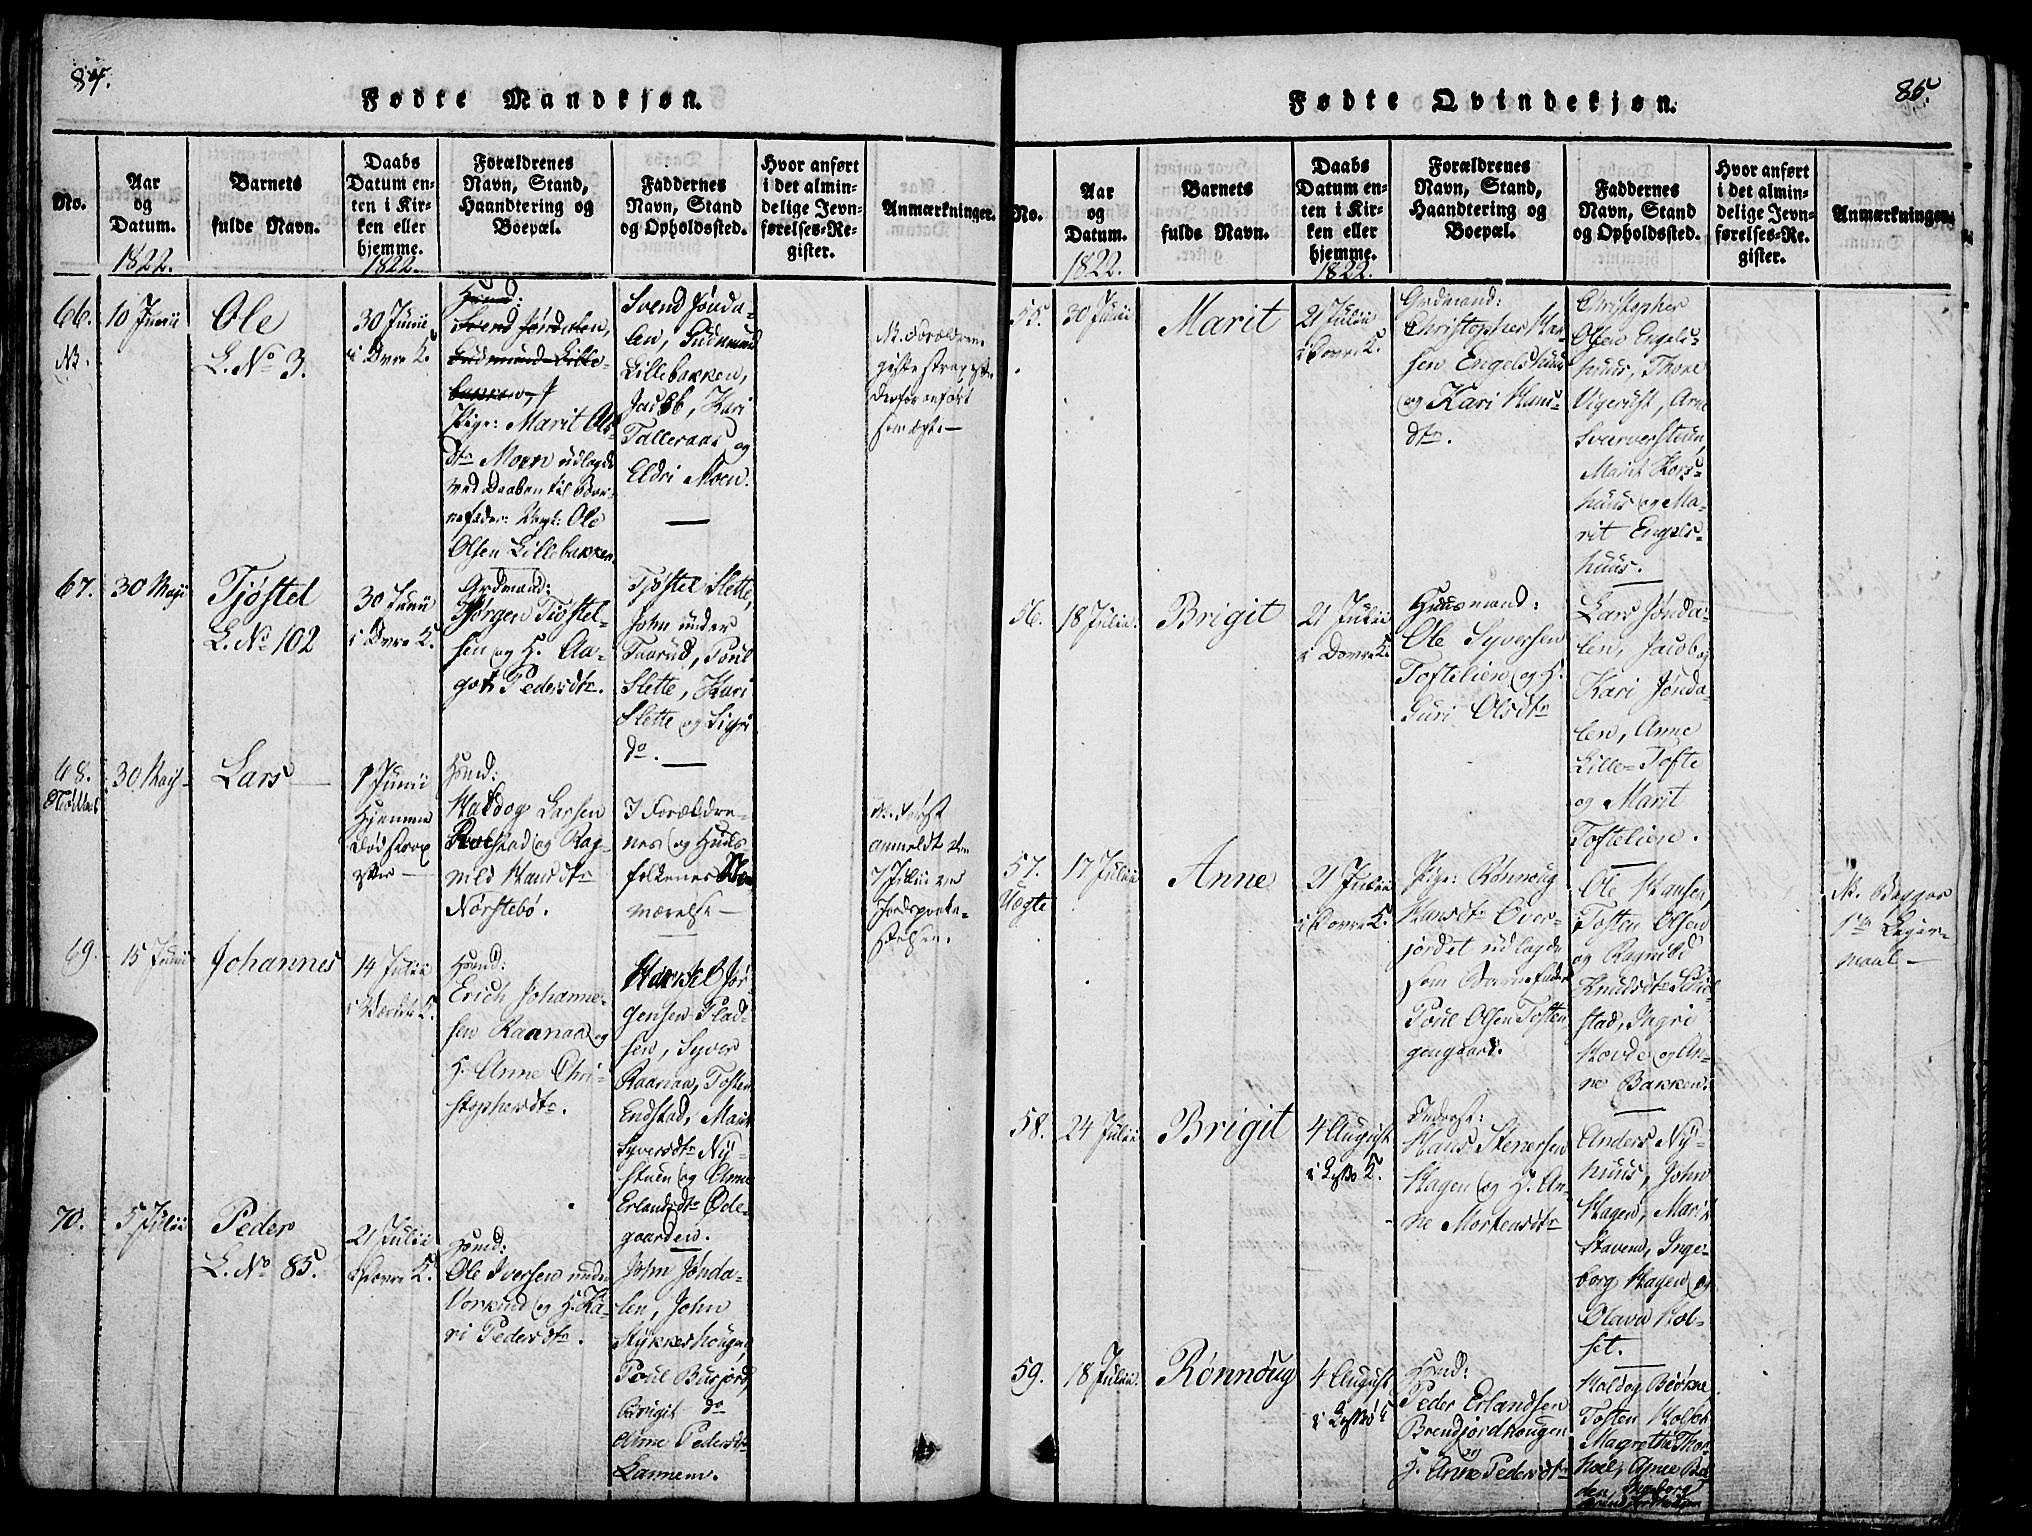 84.
Fødte Mandkjøn.
No.
Aar
og
Datum.
1822.
Barnets
fulde Navn.
Daabs
Datum en-
ten i Kir-
ken eller
hjemme.
1822.
Forældrenes
Navn, Stand,
Haandtering og
Boepæl.
Faddernes
Navn, Stand
og Opholdssted.
Hvor anført
i det almin-
delige Jevn-
førelses-Re-
gister.
Anmærkninger.
66.
10 Junii
Ole
L. No 3.
30 Junii
i Dovre K.
Svend Jøndalen,
Gudmund Lille-
bakken,
Pige: Marit Ols-
dtr Moen udlagde
ved Daaben til Bar-
nefader: Ole
Olsen Lillebakken.
Svend Jønda-
len, Gudmund
Lillebakken,
Jacob, Kari
Talleraas og
Eldri Moen.
NB. Forældrene
67.
30 Maji
Tjøstel
L. No 102
30 Junii
i Dovre K.
Grdmand:
Jørgen Tiøstel-
sen og H. Aa-
got Pedersdtr.
Tjøstel Slette,
John under
Taarud, Poul
Slette, Kari
Slette og Sigri
do.
68.
30 Maji
Lars
1 Junii
Hjemme
død strax
Hmd:
Haldog Larsen
og Rag-
nild Hansdtr
Norstebø.
I Forældre-
nes og Huus-
folkenes
værelse
NB. først
anmeldt den
7 Julii
69.
15 Junii
Johannes
14 Julii
Hmd:
Erich Johanne-
sen Raanaa og
H. Anne Chri-
stophersdtr.
Jør-
gensen Plad-
sen, Syver
Raanaa, Tosten
Endstad, Marit
Syversdtr Ny-
stuen og Anne
Erlandsdtr Øde-
gaarden.
70.
5 Julii
Peder
L. No 85.
21 Julii
i Dovre K.
Hmd:
Ole Iversen under
Vorkind og H. Ka-
ri Pedersdtr.
John Jønda-
len, John
Stykkerhougen,
Poul Busjord,
Brigit do
Anne Pedersdtr
Lannem.
85
Fødte Qvindekjøn.
No.
Aar
og
Datum.
1822.
Barnets
fulde Navn.
Daabs
Datum en-
ten i Kir-
ken eller
hjemme.
1822.
Forældrenes
Navn, Stand,
Haandtering og
Boepæl.
Faddernes
Navn, Stand
og Opholdssted.
Hvor anført
i det almin-
delige Jevn-
førelses-Re-
gister.
Anmærkninger.
55.
30 Junii
Marit
21 Julii
i Dovre K.
Grdmand:
Christopher Han-
sen Engelshuus
og Kari Hans-
dtr.
Christopher
Olsen Engels-
huus, Thore
Vigerust, Arne
Marit Kors-
huus og Ma-
rit Engels-
huus.
56.
18 Julii
Brigit
21 Julii
i Dovre K.
Huusmand:
Ole Syversen
Toftelien og H.
Guri Olsdtr
Lars Jønda-
len, Jacob og
Kari Jønda-
len, Anne
Lille-Tofte
og Marit
Toftelien.
57.
Uægte
17 Julii
Anne
21 Julii
i Dovre K.
Pige: Rønnoug
Hansdtr Over-
jordet udlagde
som Barnefader
Poul Olsen Tosten-
gengaard.
Ole Hansen,
Tosten Olsen
og Ragnild
Knudsdtr
stad, Ingri
Hovde og An-
ne Bakken.
NB. Begges
1te Leier-
maal
58.
24 Julii
Brigit
4 August
i Lesø K.
Inderst:
Hans Stenersen
Hagen og H. An-
ne Mortensdtr
Anders Ny-
huus, John
Hagen, Marit
Stavem, Inge-
borg Hagen og
Olava Hol-
set.
59.
18 Julii
Rønnoug
4 August
i Lesø K
Hmd:
Peder Erlandsen
Brendjordhougen
og
H. Anne Pedersdtr
Haldog Biørke
Tosten Holset
Magretha Thor-
Ingeborg